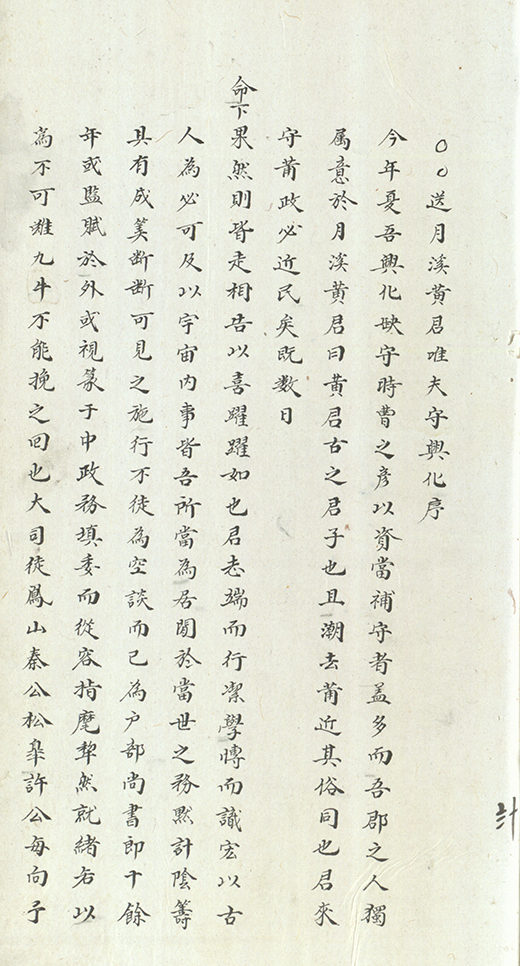 ○○送月溪黄君唯夫守興化序
今年夏吾興化缺守時曹之彦以資當補守者盖多而吾郡之人獨
属意於月溪黄君曰黄君古之君子也且潮去莆近其俗同也君來
守莆政必近民矣既数日
命下果然則皆走相告以喜躍躍如也君志端而行潔學博而識宏以古
人為必可及以宇宙内事皆吾所當為居閒於當世之务黙計陰籌
具有成筭断断可見之施行不徒為空談而已為户部尚書郎十餘
年或監賦於外或視篆于中政務填委而從容指麾犂然就緒右以
為不可雖九牛不能挽之回也大司徒鳳山秦公松皐許公每向予
計